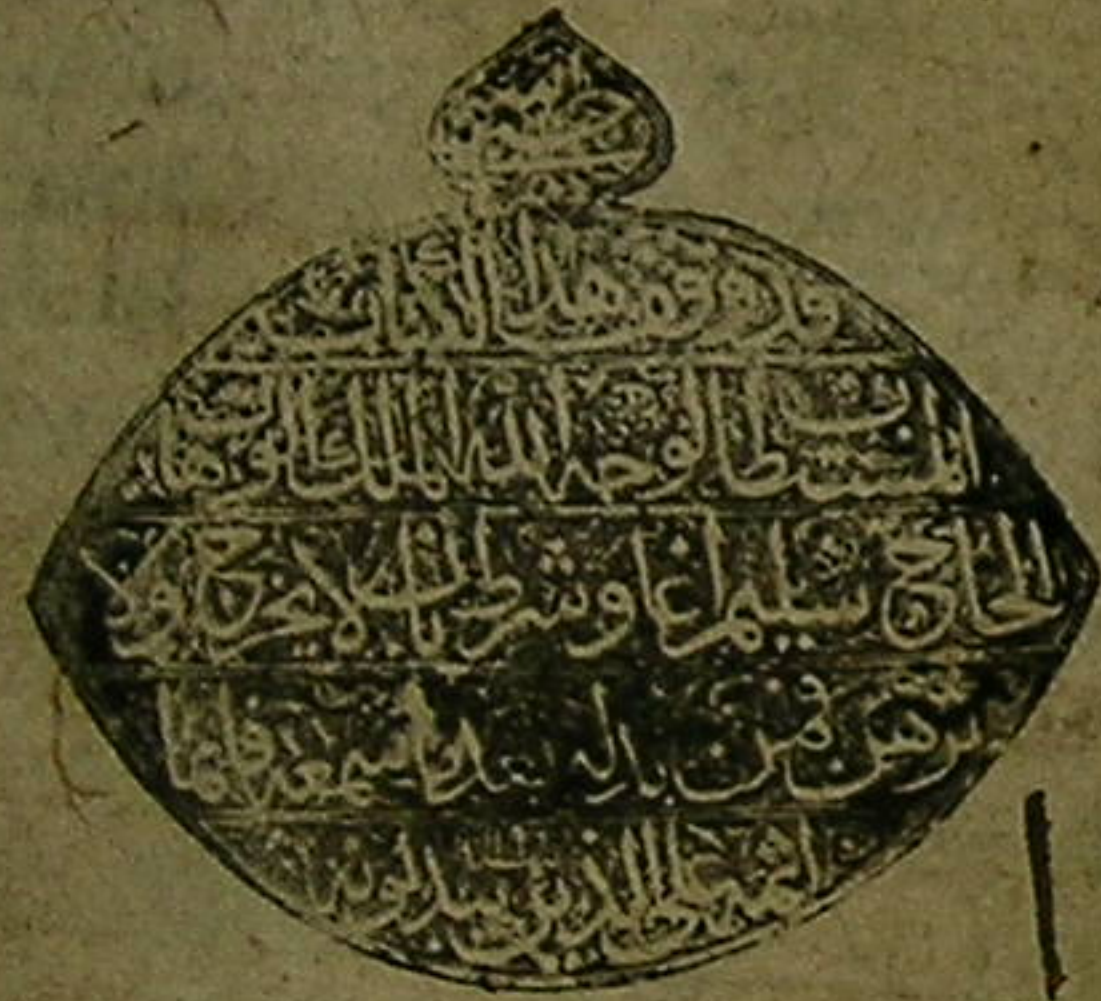 قد وقف هذا الكتاب
المستطاب لوجه الله الملك الوهاب
الحاج سليم اغا وشرط بان لا يخرج ولا
يرهن فمن بدله بعد ما سمعه فانما
اثمه على الذين يبدلونه